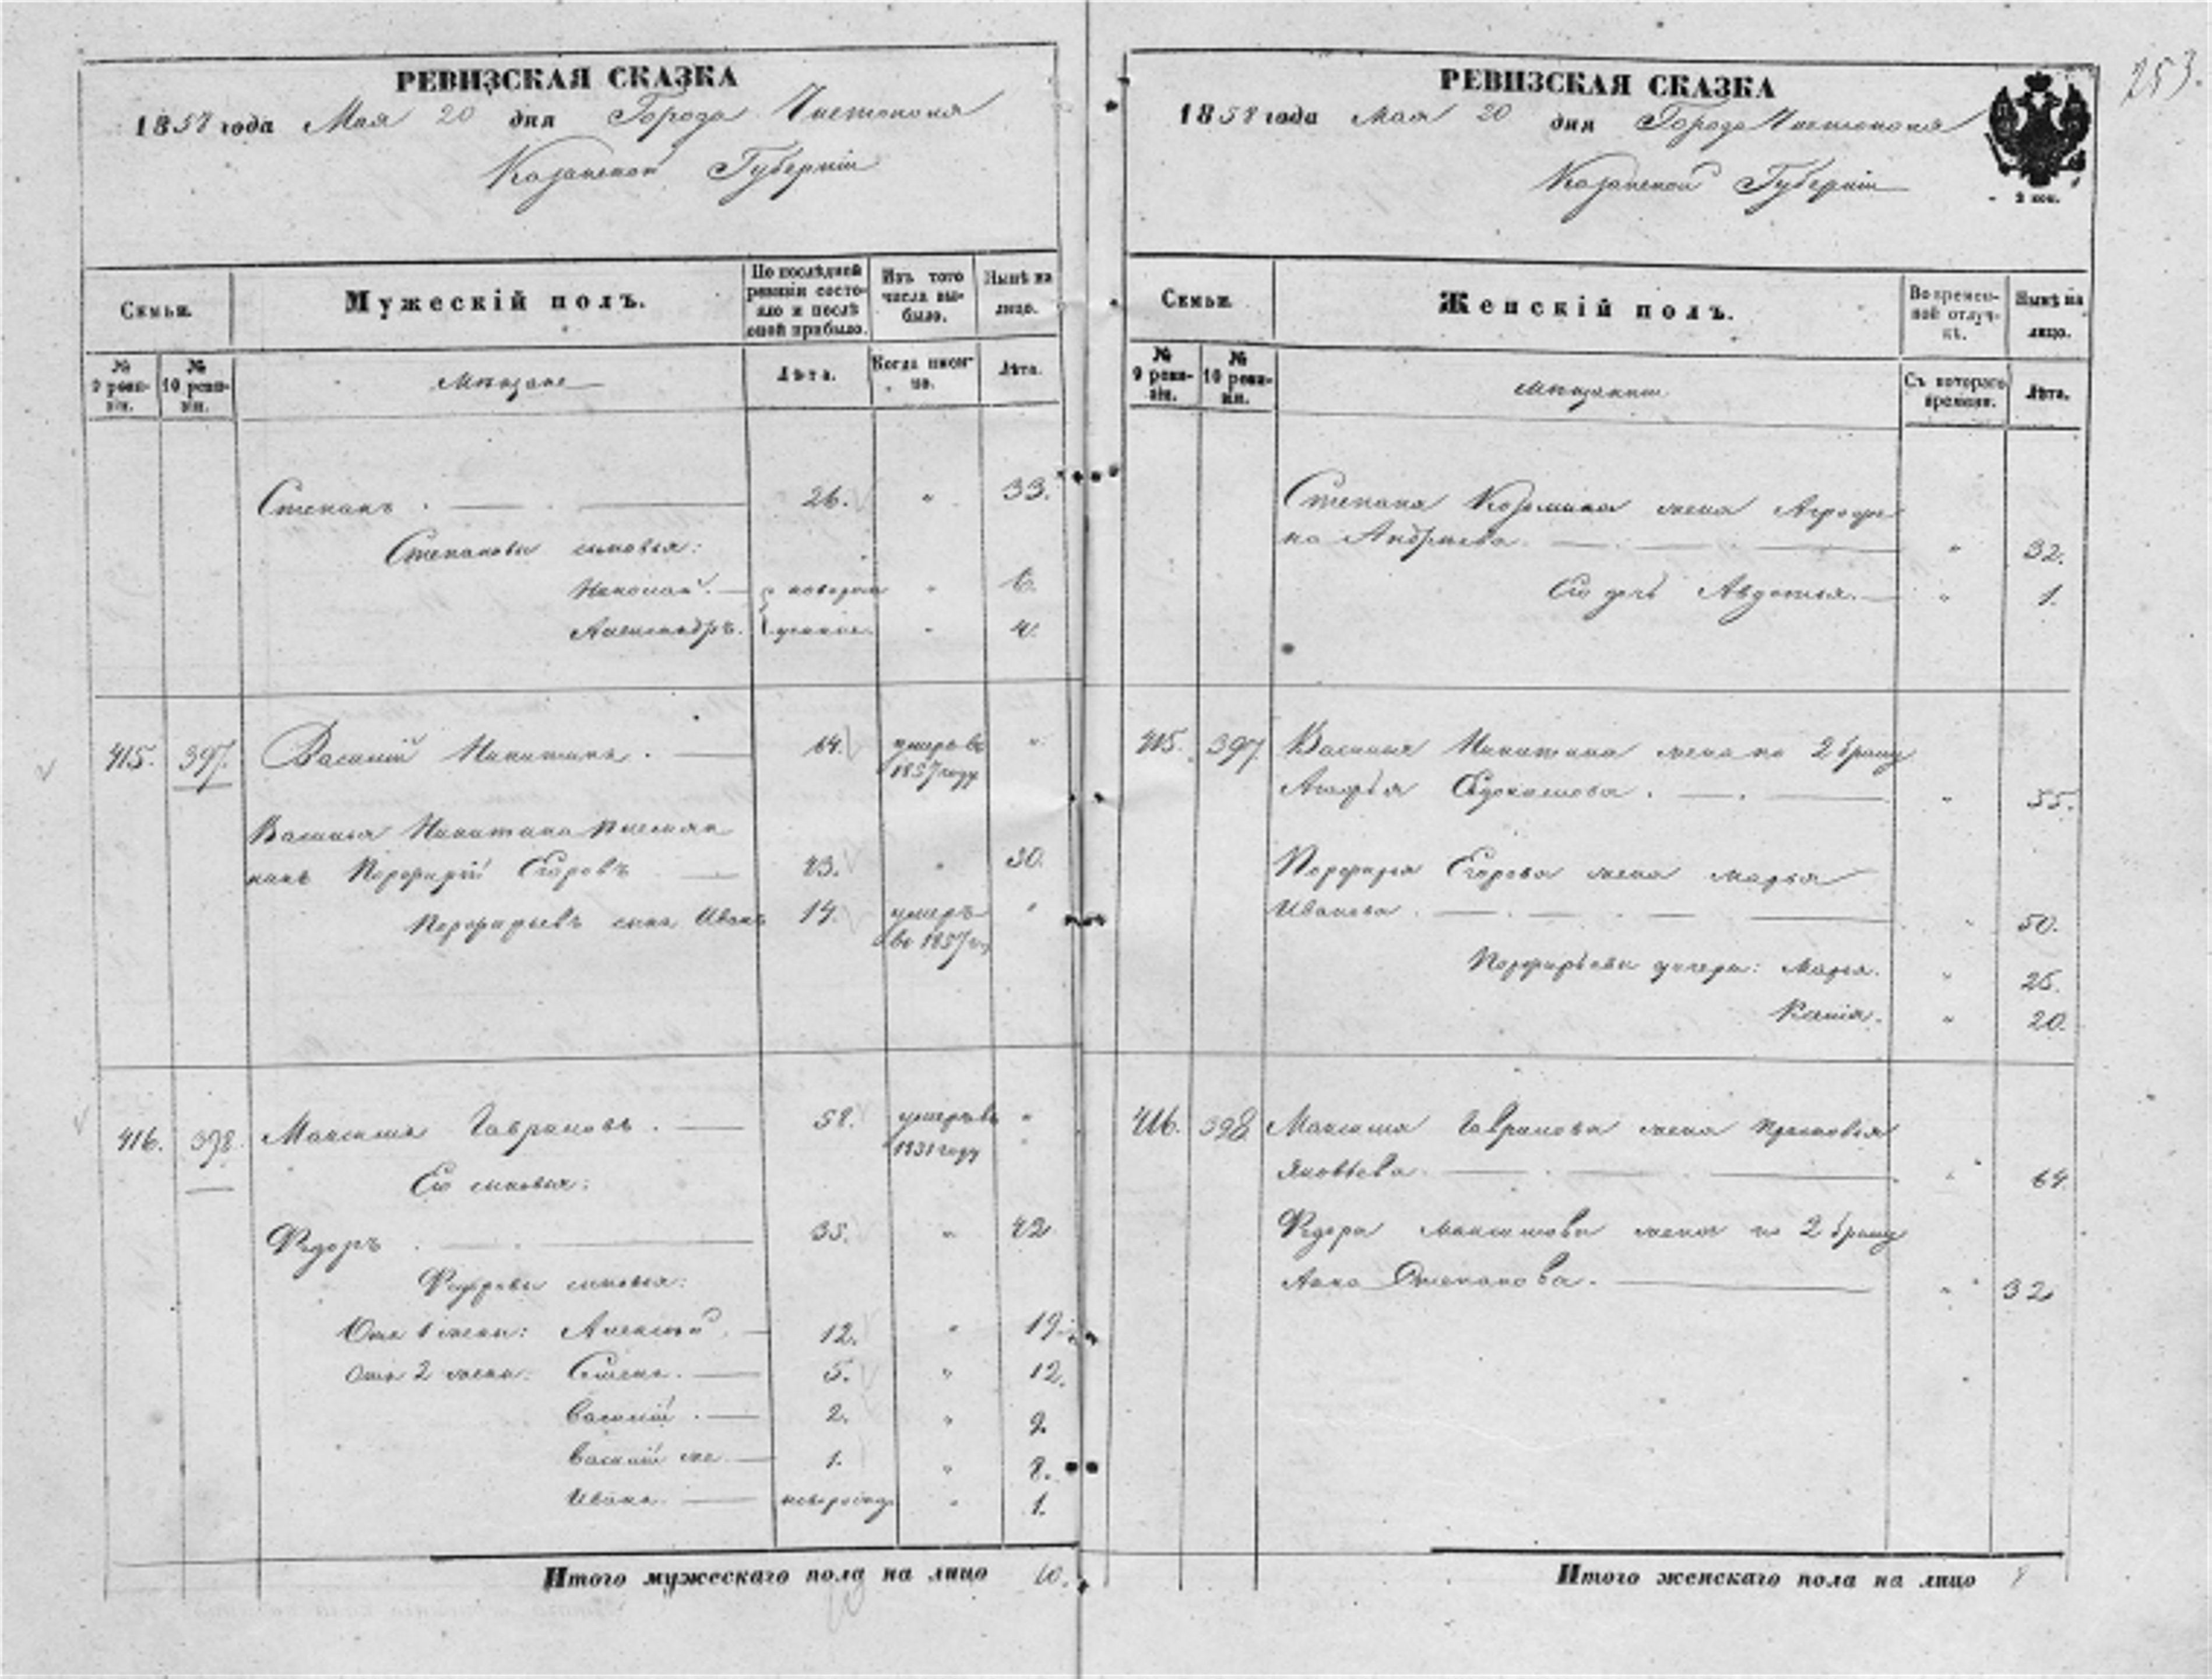 РЕВИЗСКАЯ СКАЗКА
1858 года Мая 20 дня Города Чистополя
Казанской Губерніи
Семьи.
Мужескій полъ.
По послѣдней ревизіи состояло и послѣ оной прибыло.
Изъ того числа выбыло.
Нынѣ на лицо.
№ 9 ревизіи.
№ 10 ревизіи.
Мѣщане
Лѣта.
Когда именно.
Лѣта.
Степанъ . 26. " 33.
Степановы сыновья:
Николай. " 6.
Александръ. " 4.
415. 397. Василій Никитинъ . 64. умеръ въ 1857 году "
Василья Никитина
Порфирій Егоровъ 43. " 50.
Порфирьевъ сынъ Иванъ 14. умеръ въ 1857 "
416. 398. Максимъ Гавриловъ . 58. умеръ въ "
году
Его сыновья:
Федоръ . 35. " 42
Федоровы сыновья:
Отъ 1 жены: Алексѣй 12. " 19.
Отъ 2 жены: Семенъ. 5. " 12.
Василій . 2. " 9.
Василій же 1. " 8.
Иванъ. новорожд. " 1.
Итого мужескаго пола на лицо 10.
253.
РЕВИЗСКАЯ СКАЗКА
1858 года Мая 20 дня Города Чистополя
Казанской Губерніи
Семьи.
Женскій полъ.
Во временной отлучкѣ.
Нынѣ на лицо.
№ 9 ревизіи.
№ 10 ревизіи.
Мѣщанки
Съ котораго времени.
Лѣта.
Степана Козмина жена Агрофе
на Андреева. " 32.
Его дочь Авдотья. " 1.
415. 397. Василья Никитина жена по 2 браку
Агафья . " 55.
Порфирья Егорова жена Марья
Иванова . " 50.
Порфирьевы дочери: Марья. " 25.
Ксенія. " 20.
416. 398 Максима Гаврилова жена Прасковья
Яковлева. " 64.
Федора Максимова жена по 2 браку
Анна Степанова. " 32
Итого женскаго пола на лицо 8